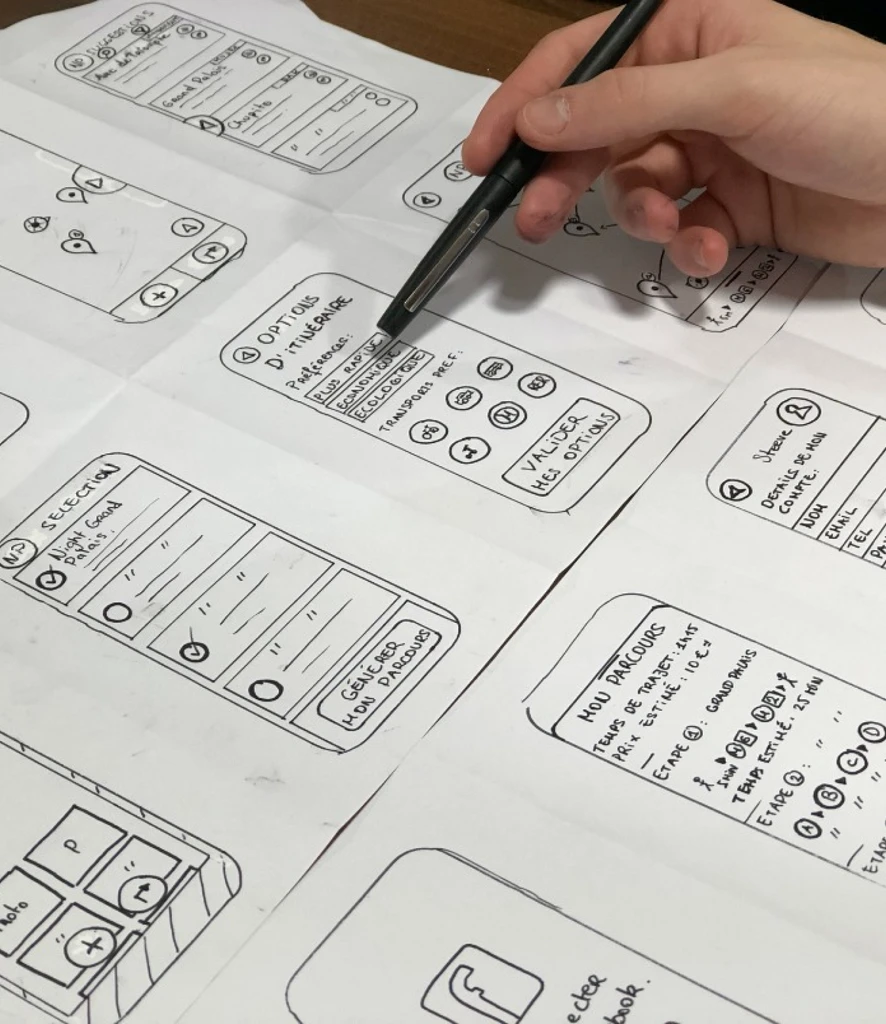 NP SUGGESTIONS
Grand Palais
Chupito
NP
OPTIONS
D'ITINÉRAIRE
Préférences:
PLUS RAPIDE
ECONOMIQUE
ECOLOGIQUE
TRANSPORTS PREF:
M
RER
VALIDER
MES OPTIONS
NP SELECTION
Night Grand
Palais.
GÉNÉRER
MON PARCOURS
Steeve
DETAILS DE MON
COMPTE:
NOM
EMAIL
TEL
MON PARCOURS
TEMPS DE TRAJET: 1H15
PRIX ESTIMÉ: 10€
ETAPE 1: GRAND PALAIS
5MIN
TEMPS ESTIMÉ. 25 MIN
ETAPE 2:
A B C D
P
f
ecter
book.